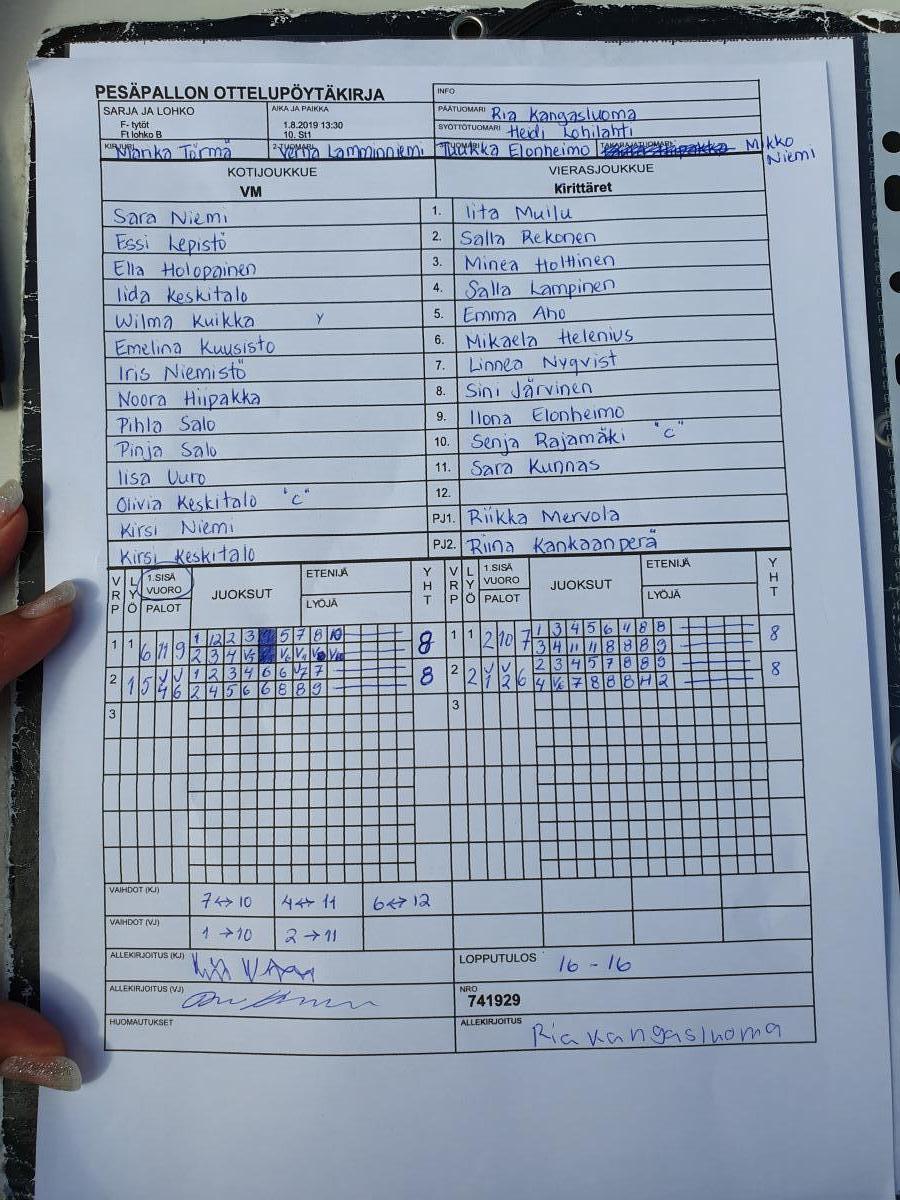 PESÄPALLON OTTELUPÖYTÄKIRJA
INFO
SARJA JA LOHKO
F- tytöt
Ft lohko B
AIKA JA PAIKKA
1.8.2019 13:30
10. St1
PÄÄTUOMARI Ria Kangasluoma
SYÖTTÖTUOMARI Heidi Lohilahti
KIRJURI Marika Törmä
2-TUOMARI Verna Lamminniemi
Tuukka Elonheimo
TAKARAJATUOMARI Mikko Niemi
KOTIJOUKKUE
VM
VIERASJOUKKUE
Kirittäret
Sara Niemi 1. Iita Muilu
Essi Lepistö 2. Salla Rekonen
Ella Holopainen 3. Minea Holttinen
Iida Keskitalo 4. Salla Lampinen
Wilma Kuikka Y 5. Emma Aho
Emelina Kuusisto 6. Mikaela Helenius
Iris Niemistö 7. Linnea Nyqvist
Noora Hiipakka 8. Sini Järvinen
Pihla Salo 9. Ilona Elonheimo
Pinja Salo 10. Senja Rajamäki "C"
Iisa Uuro 11. Sara Kunnas
Olivia Keskitalo "C" 12.
Kirsi Niemi PJ1. Riikka Mervola
Kirsi Keskitalo PJ2. Riina Kankaanperä
VRP LYÖ 1.SISÄ VUORO PALOT JUOKSUT ETENIJÄ LYÖJÄ YHT VRP LYÖ 1.SISÄ VUORO PALOT JUOKSUT ETENIJÄ LYÖJÄ YHT
1 1 6 11 9 1 12 2 3 5 7 8 10 8 1 1 2 10 7 1 3 4 5 6 11 8 8 8
2 3 4 V5 V6 3 4 11 11 8 8 8 9
2 1 5 1 2 3 4 6 6 7 8 2 2 2 3 4 5 7 8 8 9 8
2 4 5 6 6 8 8 9 4 V6 7 8 8 8 11 2
3 3
VAIHDOT (KJ) 7↔10 4↔11 6↔12
VAIHDOT (VJ) 1→10 2→11
ALLEKIRJOITUS (KJ)
LOPPUTULOS 16 - 16
ALLEKIRJOITUS (VJ)
NRO
741929
HUOMAUTUKSET
ALLEKIRJOITUS Ria Kangasluoma